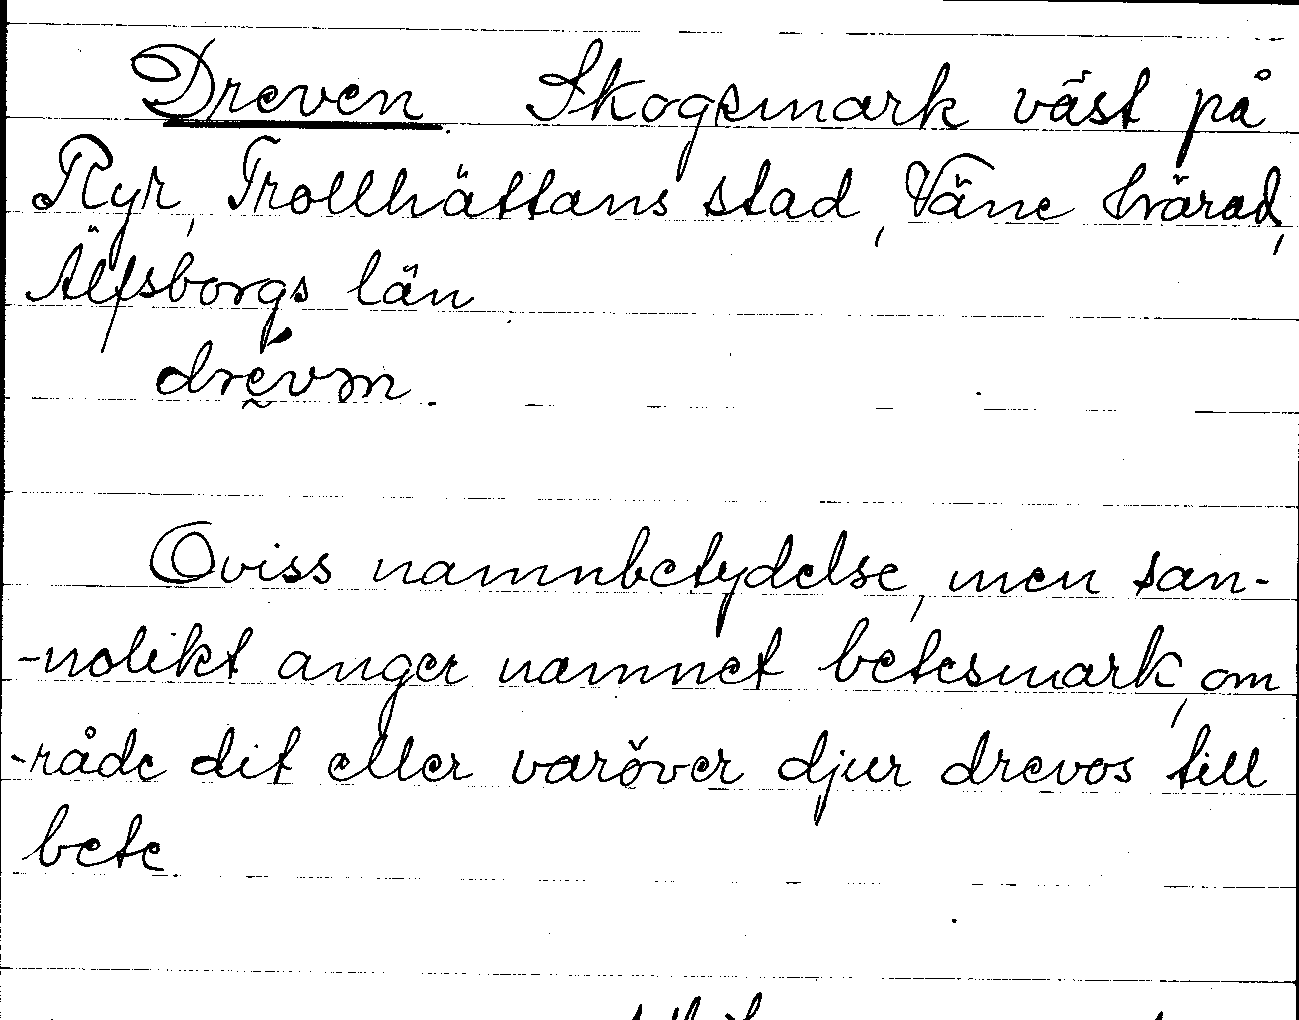 Dreven. Skogsmark väst på
Ryr, Trollhättans stad, Väne härad,
Älfsborgs län
drevm.
Oviss namnbetydelse, men san-
-nolikt anger namnet betesmark, om
-råde dit eller varöver djur drevos till
bete.